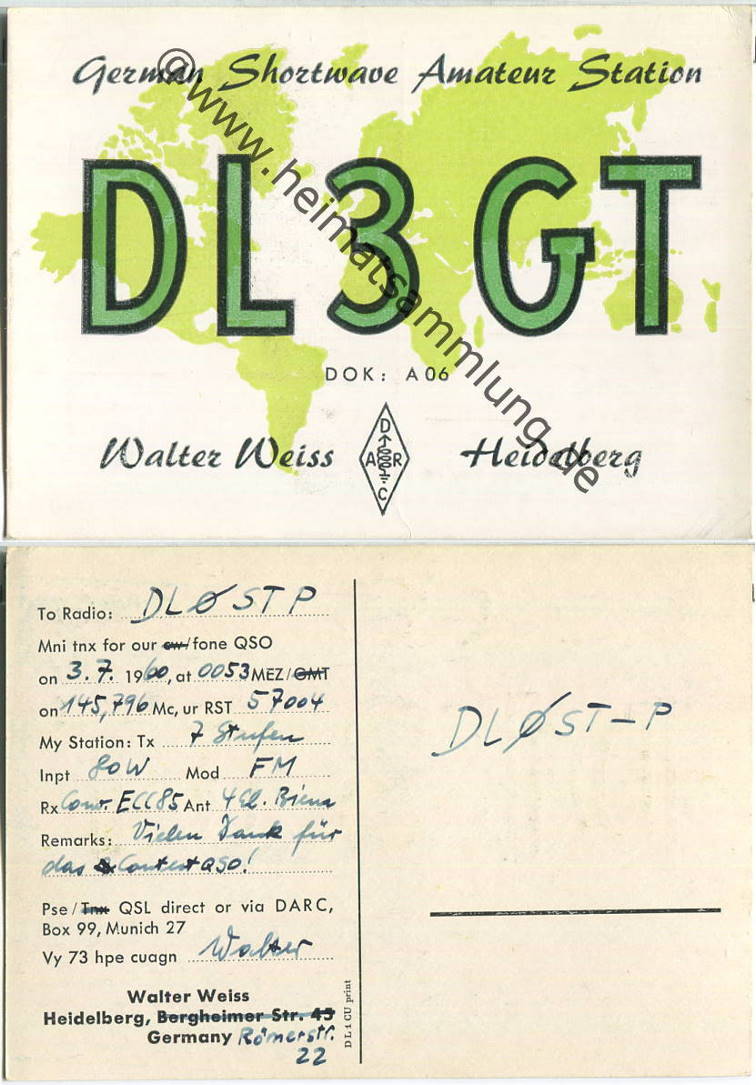 German Shortwave Amateur Station
DL3GT
DOK: A06
Walter Weiss
D
A R
C
Heidelberg
©www.heimatsammlung.de
To Radio: DLØSTP
Mni tnx for our cw/fone QSO
on 3.7. 1960, at 0053 MEZ/GMT
on 145,796 Mc, ur RST 57004
My Station: Tx 7 Stufen
Inpt 80W Mod FM
Rx Conv. ECC85 Ant 4 El. Biena
Remarks: Vielen Dank für
das Contest QSO!
Pse/Tnx QSL direct or via DARC,
Box 99, Munich 27
Vy 73 hpe cuagn Walter
Walter Weiss
Heidelberg, Bergheimer Str. 45
Germany Römerstr.
22
DL1CU print
DLØST-P